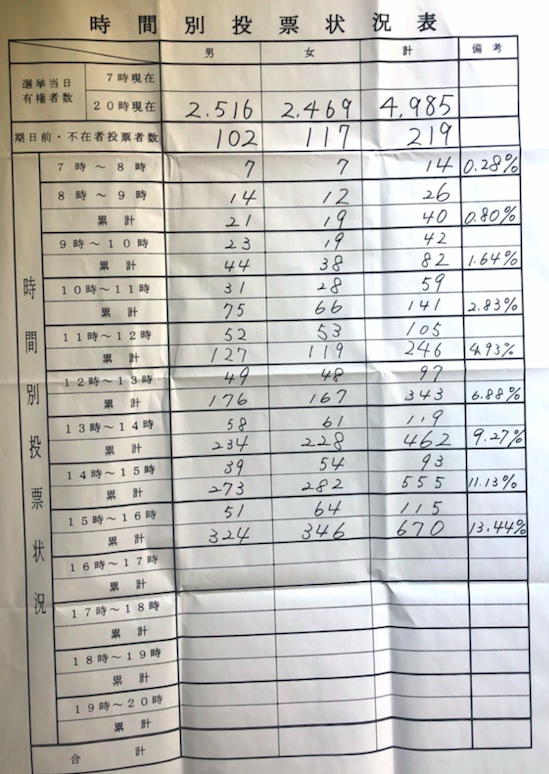 時間別投票状況表
男 女 計 備考
選挙当日有権者数 7時現在
20時現在 2.516 2.469 4.985
期日前・不在者投票者数 102 117 219
時間別投票状況
7時～8時 7 7 14 0.28%
8時～9時 14 12 26
累計 21 19 40 0.80%
9時～10時 23 19 42
累計 44 38 82 1.64%
10時～11時 31 28 59
累計 75 66 141 2.83%
11時～12時 52 53 105
累計 127 119 246 4.93%
12時～13時 49 48 97
累計 176 167 343 6.88%
13時～14時 58 61 119
累計 234 228 462 9.27%
14時～15時 39 54 93
累計 273 282 555 11.13%
15時～16時 51 64 115
累計 324 346 670 13.44%
16時～17時
累計
17時～18時
累計
18時～19時
累計
19時～20時
累計
合計